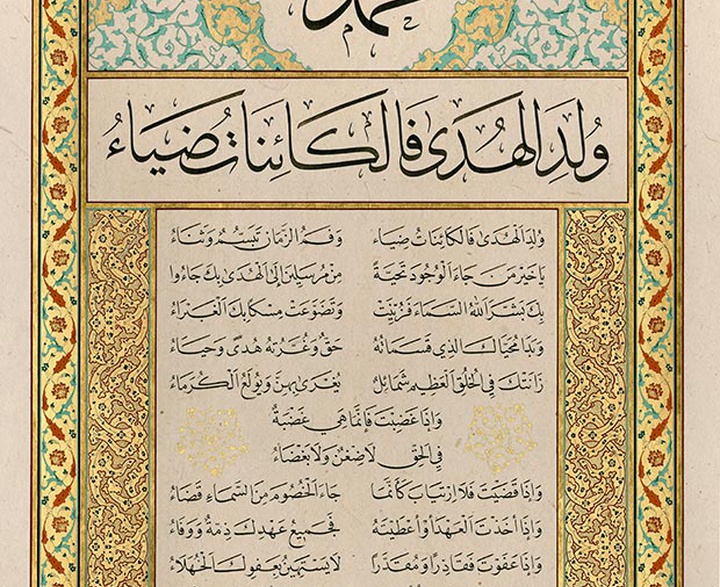 محمد
وُلِدَ الهُدَىٰ فَالكَائِنَاتُ ضِيَاءُ
وُلِدَ الْهُدَىٰ فَالكَائِنَاتُ ضِيَاءُ وَفَمُ الزَّمَانِ تَبَسُّمٌ وَثَنَاءُ
يَا خَيْرَ مَن جَاءَ الْوُجُودَ تَحِيَّةً مِنْ مُرْسَلِينَ إِلَى الْهُدَىٰ بِكَ جَاءُوا
بِكَ بَشَّرَ اللهُ السَّمَاءَ فَزُيِّنَتْ وَتَضَوَّعَتْ مِسْكًا بِكَ الْغَبْرَاءُ
وَبَدَا مُحَيَّاكَ الَّذِي قَسَمَاتُهُ حَقٌّ وَغُرَّتُهُ هُدًى وَحَيَاءُ
زَانَتْكَ فِي الْخُلُقِ الْعَظِيمِ شَمَائِلٌ يُغْرَىٰ بِهِنَّ وَيُولَعُ الْكُرَمَاءُ
وَإِذَا غَضِبْتَ فَإِنَّمَا هِيَ غَضْبَةٌ
فِي الْحَقِّ لَا ضِغْنٌ وَلَا بَغْضَاءُ
وَإِذَا قَضَيْتَ فَلَا ارْتِيَابَ كَأَنَّمَا جَاءَ الْخُصُومَ مِنَ السَّمَاءِ قَضَاءُ
وَإِذَا أَخَذْتَ الْعَهْدَ أَوْ أَعْطَيْتَهُ فَجَمِيعُ عَهْدِكَ ذِمَّةٌ وَوَفَاءُ
وَإِذَا عَفَوْتَ فَقَادِرًا وَمُقَدَّرًا لَا يَسْتَهِينُ بِعَفْوِكَ الْجُهَلَاءُ